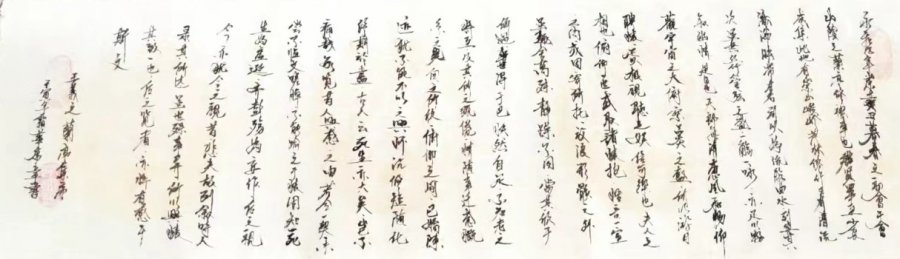 永和九年歲在癸丑暮春之初會于會
山陰之蘭亭修禊事也群賢畢至
咸集此地有崇山峻嶺茂林修竹又有清流
激湍映帶左右引以為流觴曲水列坐其
次雖無絲竹管弦之盛一觴一詠亦足以暢
敘幽情是日也天朗氣清惠風和暢仰
觀宇宙之大俯察品類之盛所以游目
騁懷足以極視聽之娛信可樂也夫人之
相與俯仰一世或取諸懷抱悟言一室
之內或因寄所托放浪形骸之外
雖趣舍萬殊靜躁不同當其欣于
所遇暫得于己快然自足不知老之
將至及其所之既倦情隨事遷感慨
係之矣向之所欣俯仰之間已為陳
迹猶不能不以之興懷況修短隨化
終期於盡古人云死生亦大矣豈不
痛哉每覽者人興感之由若合一契未
嘗不臨文嗟悼不能喻之于懷固知死
生為虛誕齊彭殤為妄作後之視
今亦猶今之視昔悲夫故列敘時人
錄其所述雖世殊事異所以興懷
其致一也後之覽者亦將有感于
斯文
王羲之蘭亭序